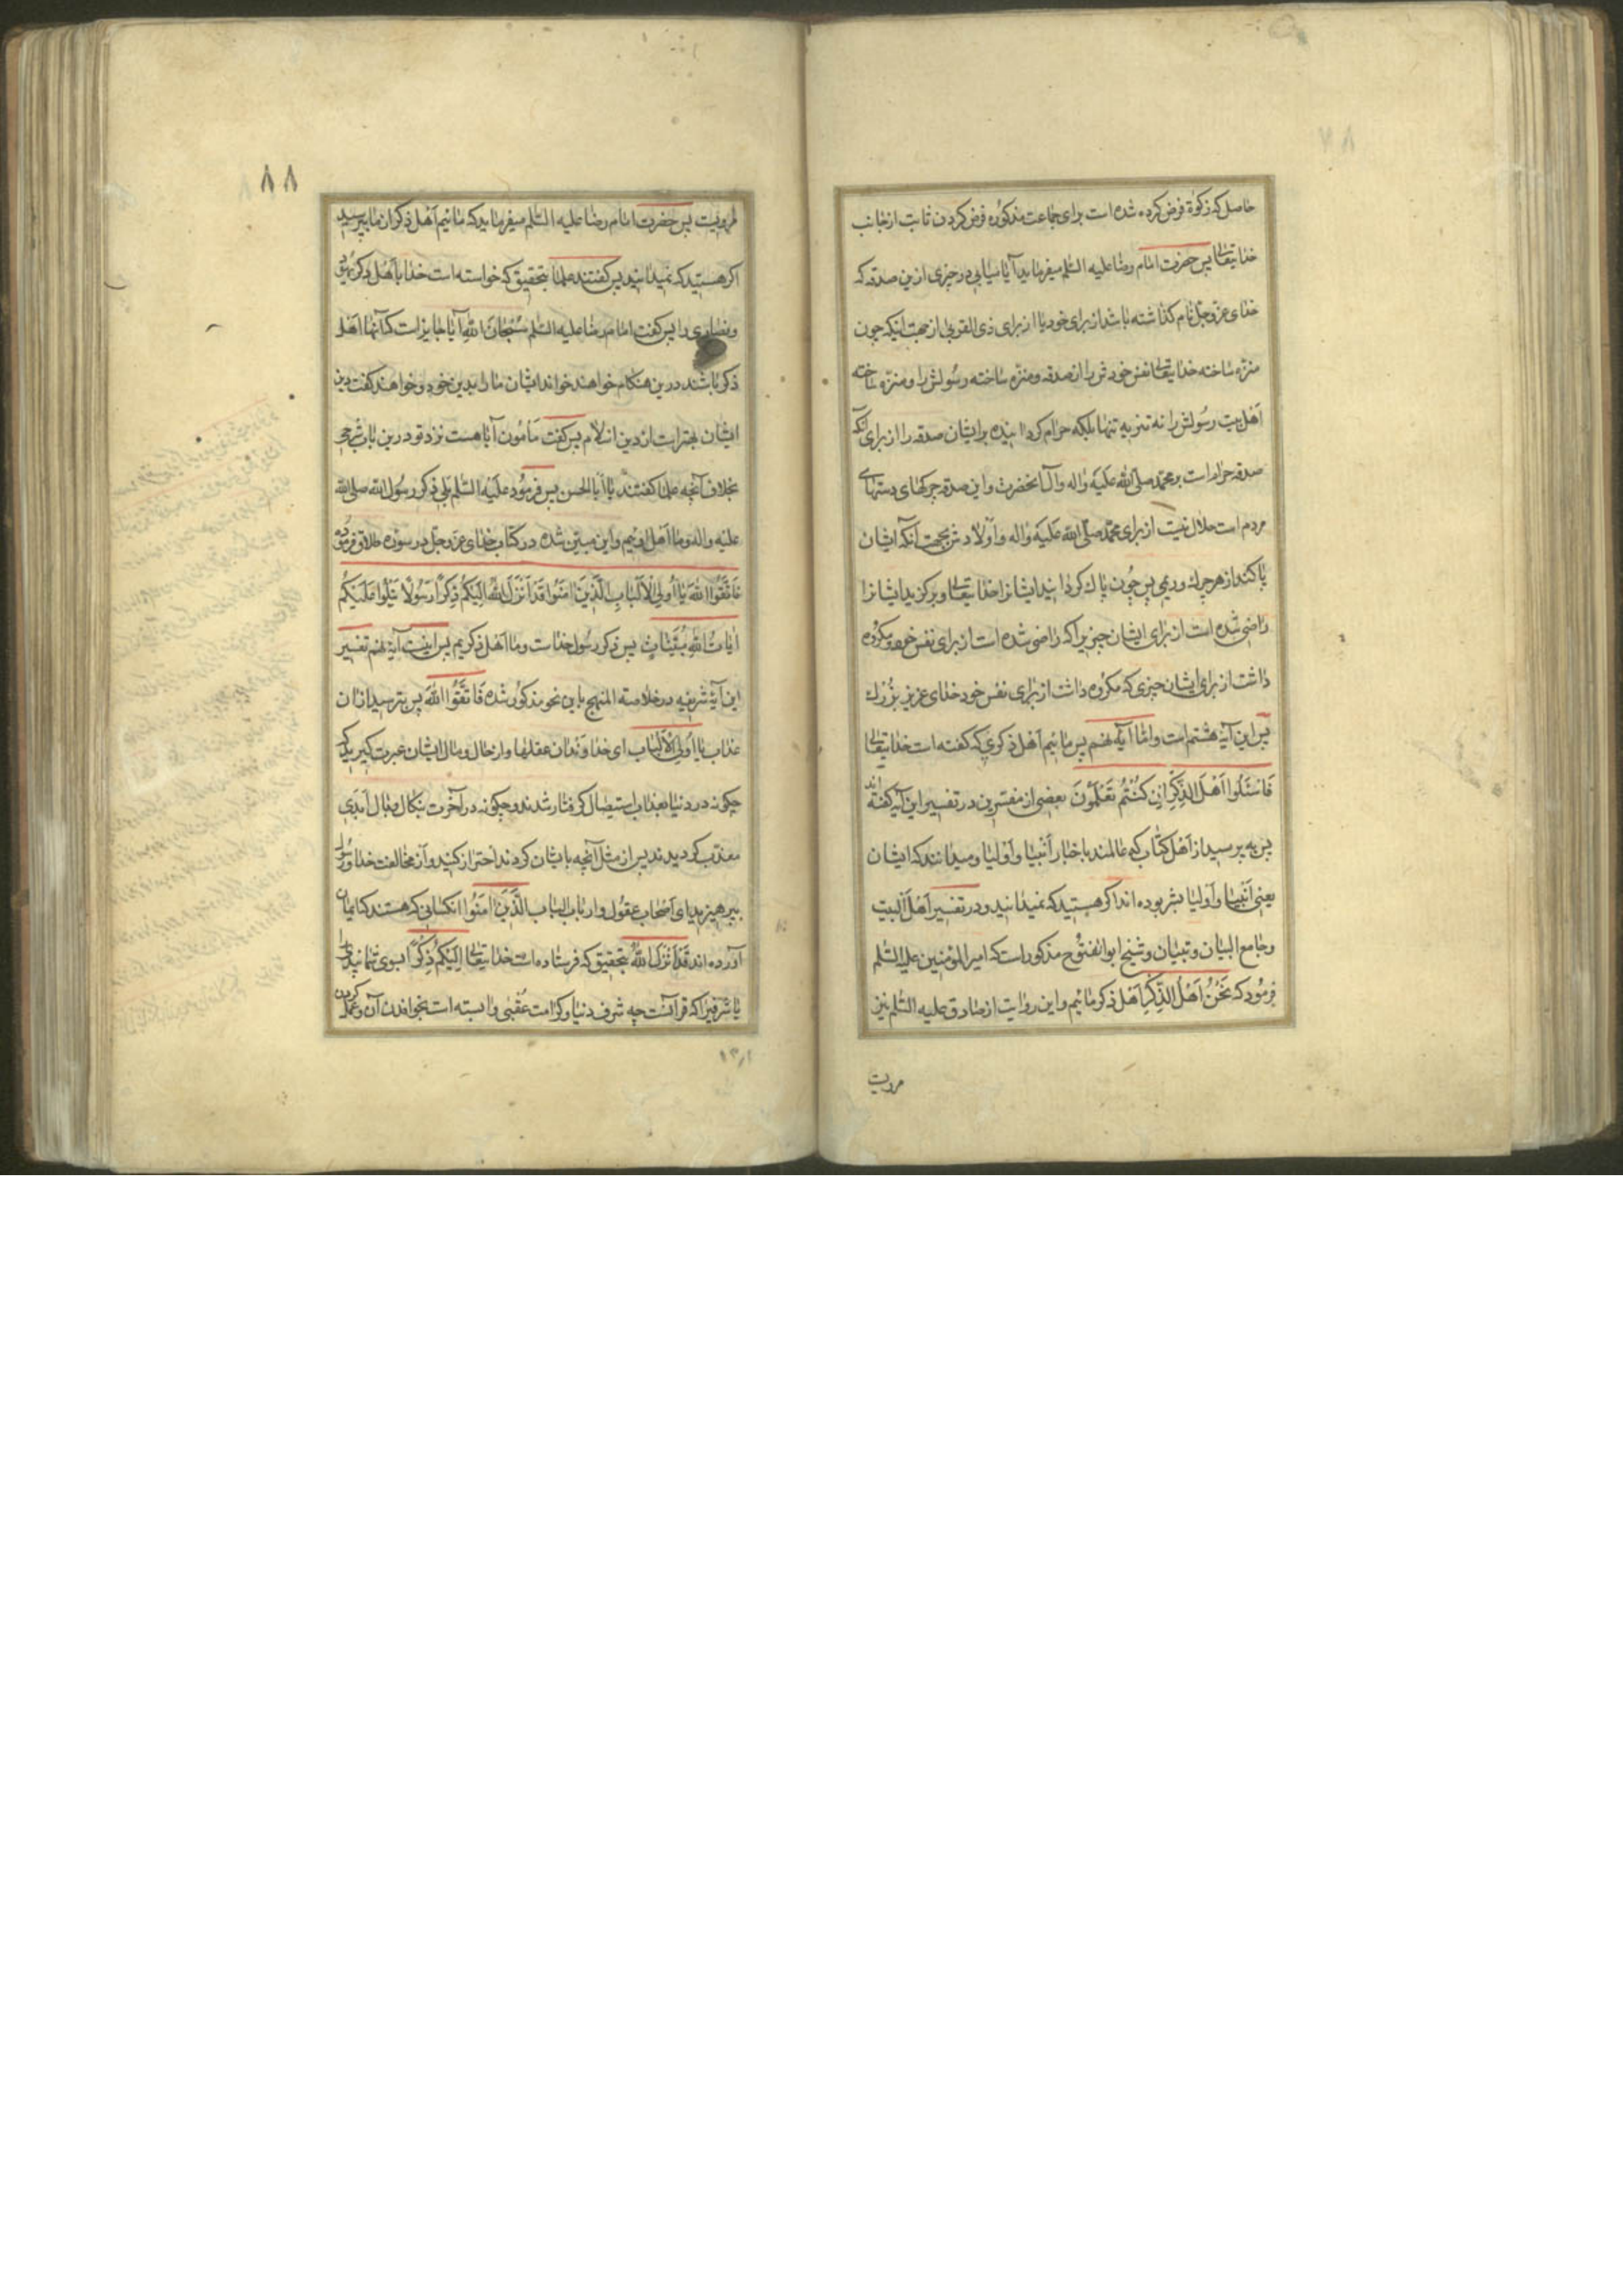 حاصل که زکوة فرض کرده شده است برای جماعت مذکوره فرض کردن ثابت از جانب
خدایتعالی پس حضرت امام رضا علیه السلم میفرماید آیا میابی در چیزی ازین صدقه که
خدای عز و جل نام گذاشته باشد از برای خود یا از برای ذی القربی از جهت اینکه چون
منزه ساخته خدایتعالی نفس خودش را از صدقه و منزه ساخته رسولش را و منزه ساخته
اهل بیت رسولش را نه تنزیه تنها بلکه حرام کردانیده بر ایشان صدقه را از برای آنکه
صدقه حرام است بر محمد صلی الله علیه واله وآل آنحضرت واین صدقه چرکهای دستهای
مردم است حلال نیست از برای محمد صلی الله علیه واله و اولادش بجهت آنکه ایشان
پاکند از هر چرک وریمی پس چون پاک کردانید ایشانرا خدایتعالی و برکزید ایشانرا
راضی شده است از برای ایشان چیزیرا که راضی شده است از برای نفس خود و مکروه
داشت از برای ایشان چیزی که مکروه داشت از برای نفس خود خدای عزیز بزرک
پس این آیه هشتم است واما آیه نهم پس مائیم اهل ذکری که کفته است خدایتعالی
فَاسْئَلُوا اَهْلَ الذِّکْرِ اِنْ کُنْتُمْ تَعْلَمُونَ بعضی از مفسرین در تفسیر این آیه کفته اند
پس به پرسید از اهل کتاب که عالمند باخبار انبیا و اولیا و میدانند که ایشان
یعنی انبیا و اولیا بشر بوده اند اکر هستید که نمیدانید و در تفسیر اهل البیت
و جامع البیان و تبیان و شیخ ابوالفتوح مذکور است که امیر المؤمنین علیه السلم
فرمود که نَحْنُ اَهْلُ الذِّکْرِ اهل ذکر مائیم و این روایت از صادق علیه السلم نیز
مرویت
٨٨
مرویست پس حضرت امام رضا علیه السلم میفرماید که مائیم اهل ذکر از ما بپرسید
اکر هستید که نمیدانید پس کفتند علما بتحقیق که خواسته است خدا باهل ذکر یهود
و نصاری را پس کفت امام رضا علیه السلم سبحان الله آیا جایز است که آنها اهل
ذکر باشند درین هنکام خواهند خواند ایشان ما را بدین خود و خواهند کفت دین
ایشان بهتر است از دین اسلام پس کفت مأمون آیا هست نزد تو درین باب شرحی
بخلاف آنچه علما کفتند یا ابا الحسن پس فرمود علیه السلم بلی ذکر رسول الله صلی الله
علیه واله و ما اهل اوئیم واین مبین شده در کتاب خدای عز و جل در سوره طلاق فرموده
فَاتَّقُوا اللهَ یا اُولِی الْاَلْبابِ الَّذینَ امَنُوا قَدْ اَنْزَلَ اللهُ اِلَیْکُمْ ذِکْرًا رَسُولًا یَتْلُوا عَلَیْکُمْ
ایاتِ اللهِ مُبَیِّناتٍ پس ذکر رسول خداست و ما اهل ذکریم پس اینست آیه نهم تفسیر
این آیه شریفه در خلاصة المنهج باین نحو مذکور شده فَاتَّقُوا اللهَ پس بترسید از ان
عذاب یا اُولِی الْاَلْبابِ ای خداوندان عقلها و از حال و مال ایشان عبرت کیرید که
چکونه در دنیا بعذاب استیصال کرفتار شدند و چکونه در آخرت بنکال وبال ابدی
معذب کردیدند پس از مثل آنچه بایشان کردند احتراز کنید و از مخالفت خدا و رسول
بپرهیزید ای اصحاب عقول و ارباب الباب الَّذینَ امَنُوا انکسانی که هستند که ایمان
آورده اند قَدْ اَنْزَلَ اللهُ بتحقیق که فرستاده است خدایتعالی اِلَیْکُمْ ذِکْرًا بسوی شما پندی را
یا شرفیرا که قرآنست چه شرف دنیا و کرامت عقبی وابسته است بخواندن آن و عمل کردن